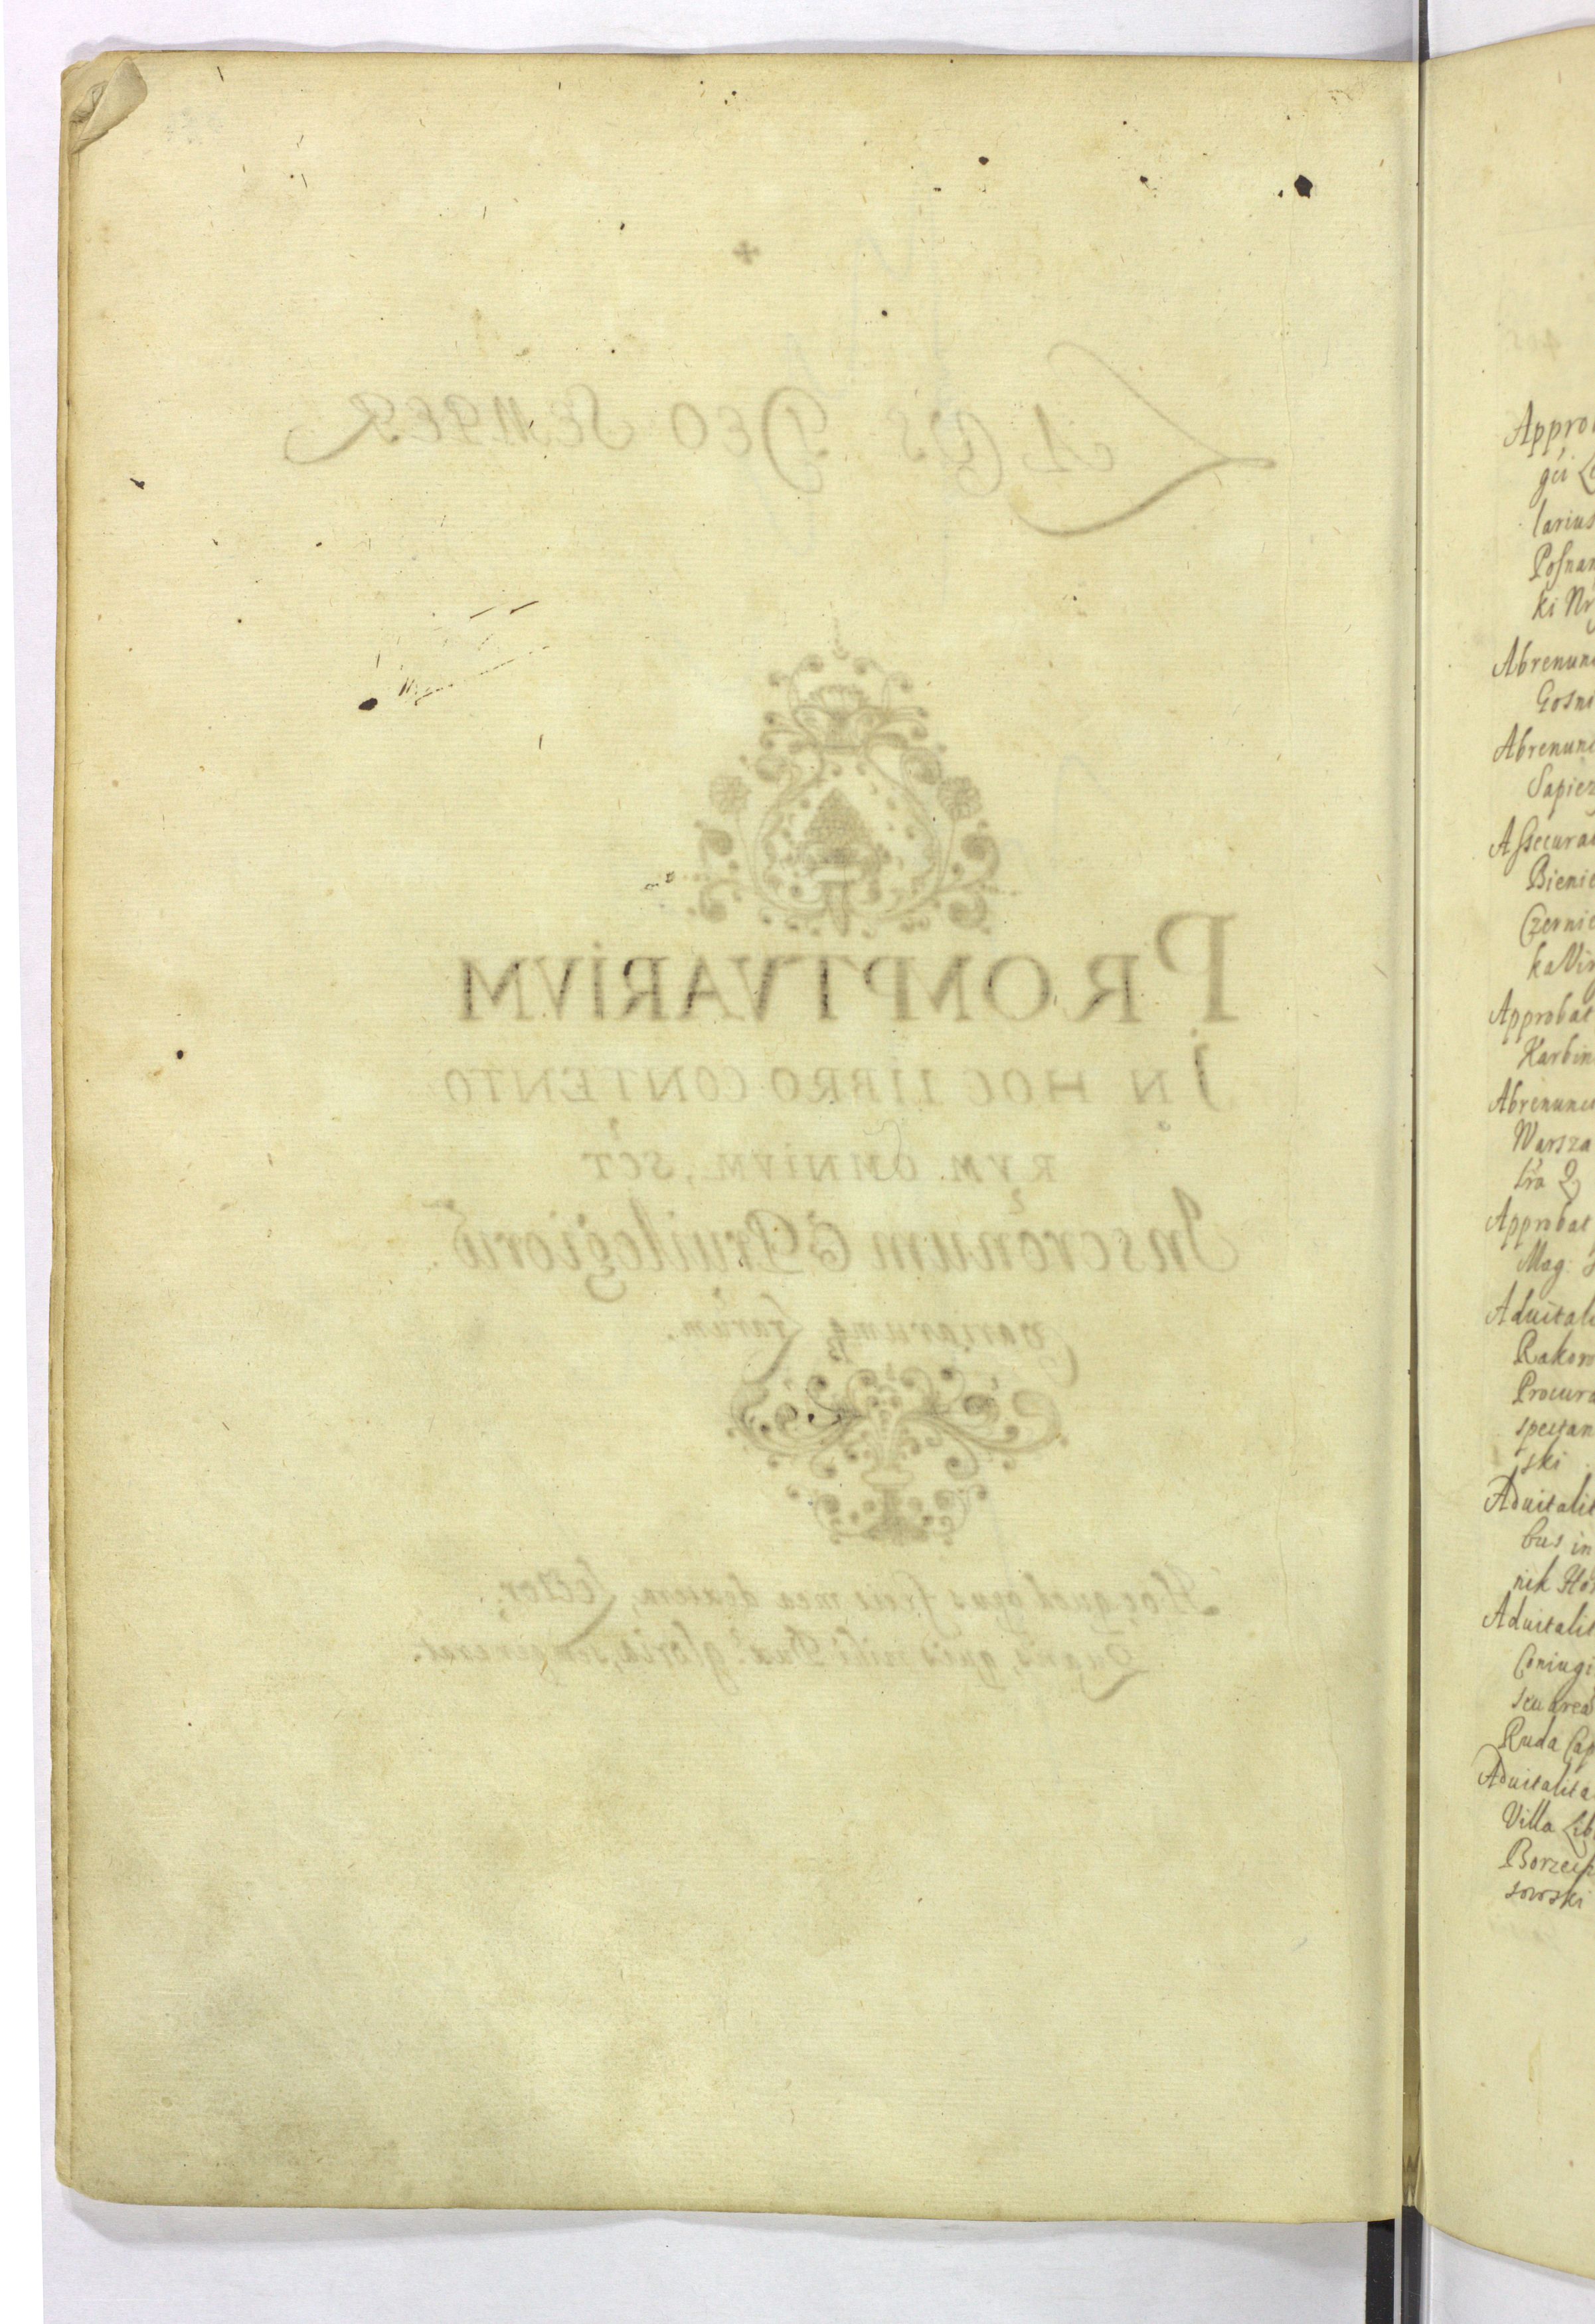 ✠
LAUS DEO SEMPER
PROMPTVARIVM
IN HOC LIBRO CONTENTO
RVM OMNIVM, SCT
Inscronum & Priuilegioru
variarumq Lrarum.
Hoc quod opus fecit mea dextera, Lector,
quis mihi gloria,
Appro
gii
larius
Posnan
ki
Abrenun
Gosni
Abrenun
Sapiez
Assecura
Bienie
Czernie
ka Vir
Approbat
Karbin
Abrenunci
Warsza
tra
Approbat
Mag:
Aduitali
Rakow
Procura
spectan
ski
Aduitalit
bus in
nik
Aduitalit
Coniugi
seu area
Ruda Cap
Aduitalita
Villa Lib
Borzeis
sowski